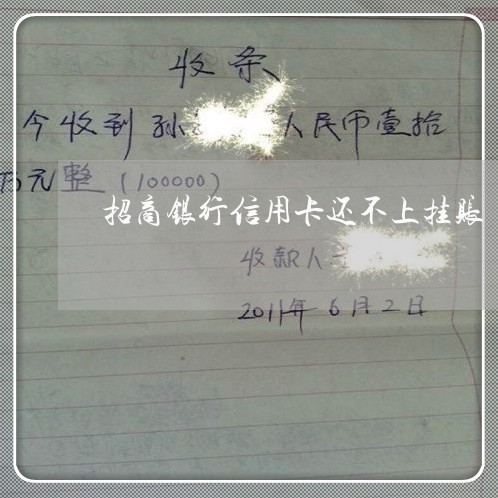 收条
今收到孙 人民币壹拾
万元整(100000)
招商银行信用卡还不上挂账
收款人
2011年6月2日